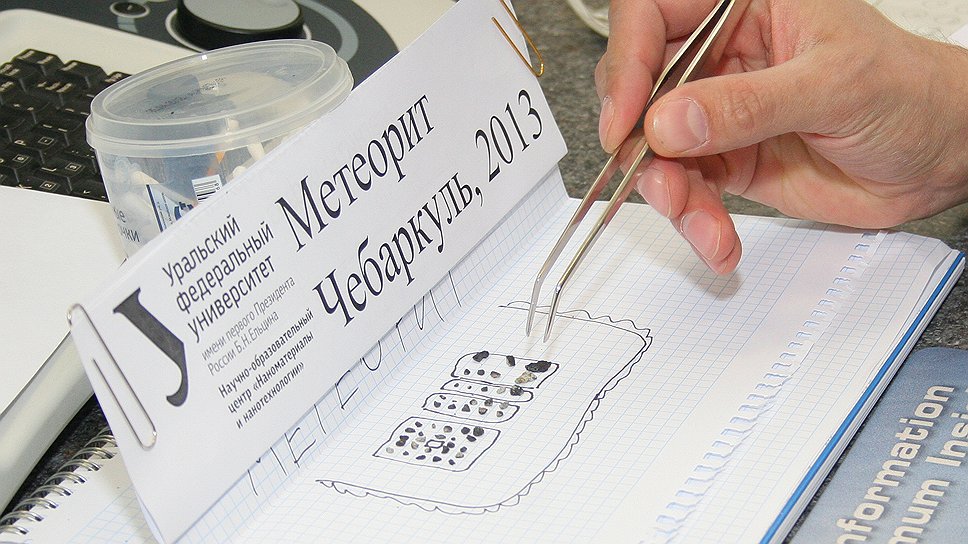 У
Уральский
федеральный
университет
имени первого Президента
России Б.Н.Ельцина
Научно-образовательный
центр «Наноматериалы
и нанотехнологии»
Метеорит
Чебаркуль, 2013
nformation